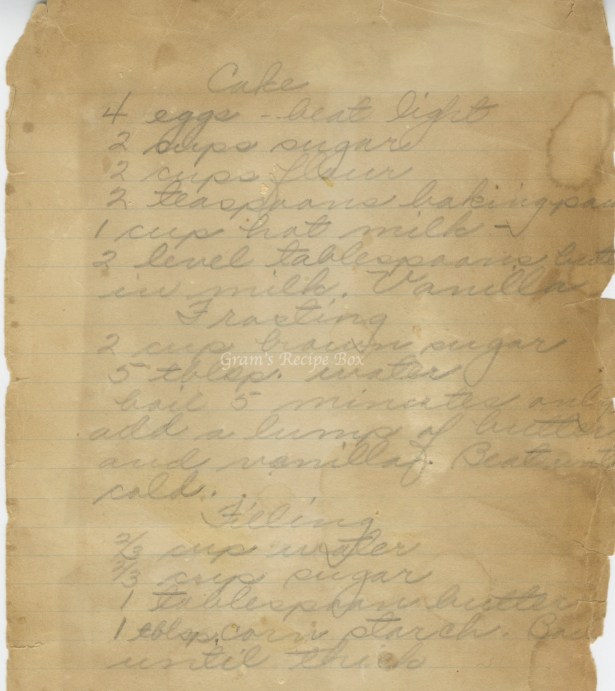 Cake
4 eggs - beat light
2 cups sugar
2 cups flour
2 teaspoons baking pow
1 cup hot milk -
2 level tablespoons butt
in milk. Vanilla
Frosting
2 cup brown sugar
Gram's Recipe Box
5 tblsp. water
boil 5 minutes only
add a lump of butter
and vanilla. Beat unti
cold.
Filling
2/3 cup water
2/3 cup sugar
1 tablespoon butter
1 tblsp. corn starch. Boi
until thick